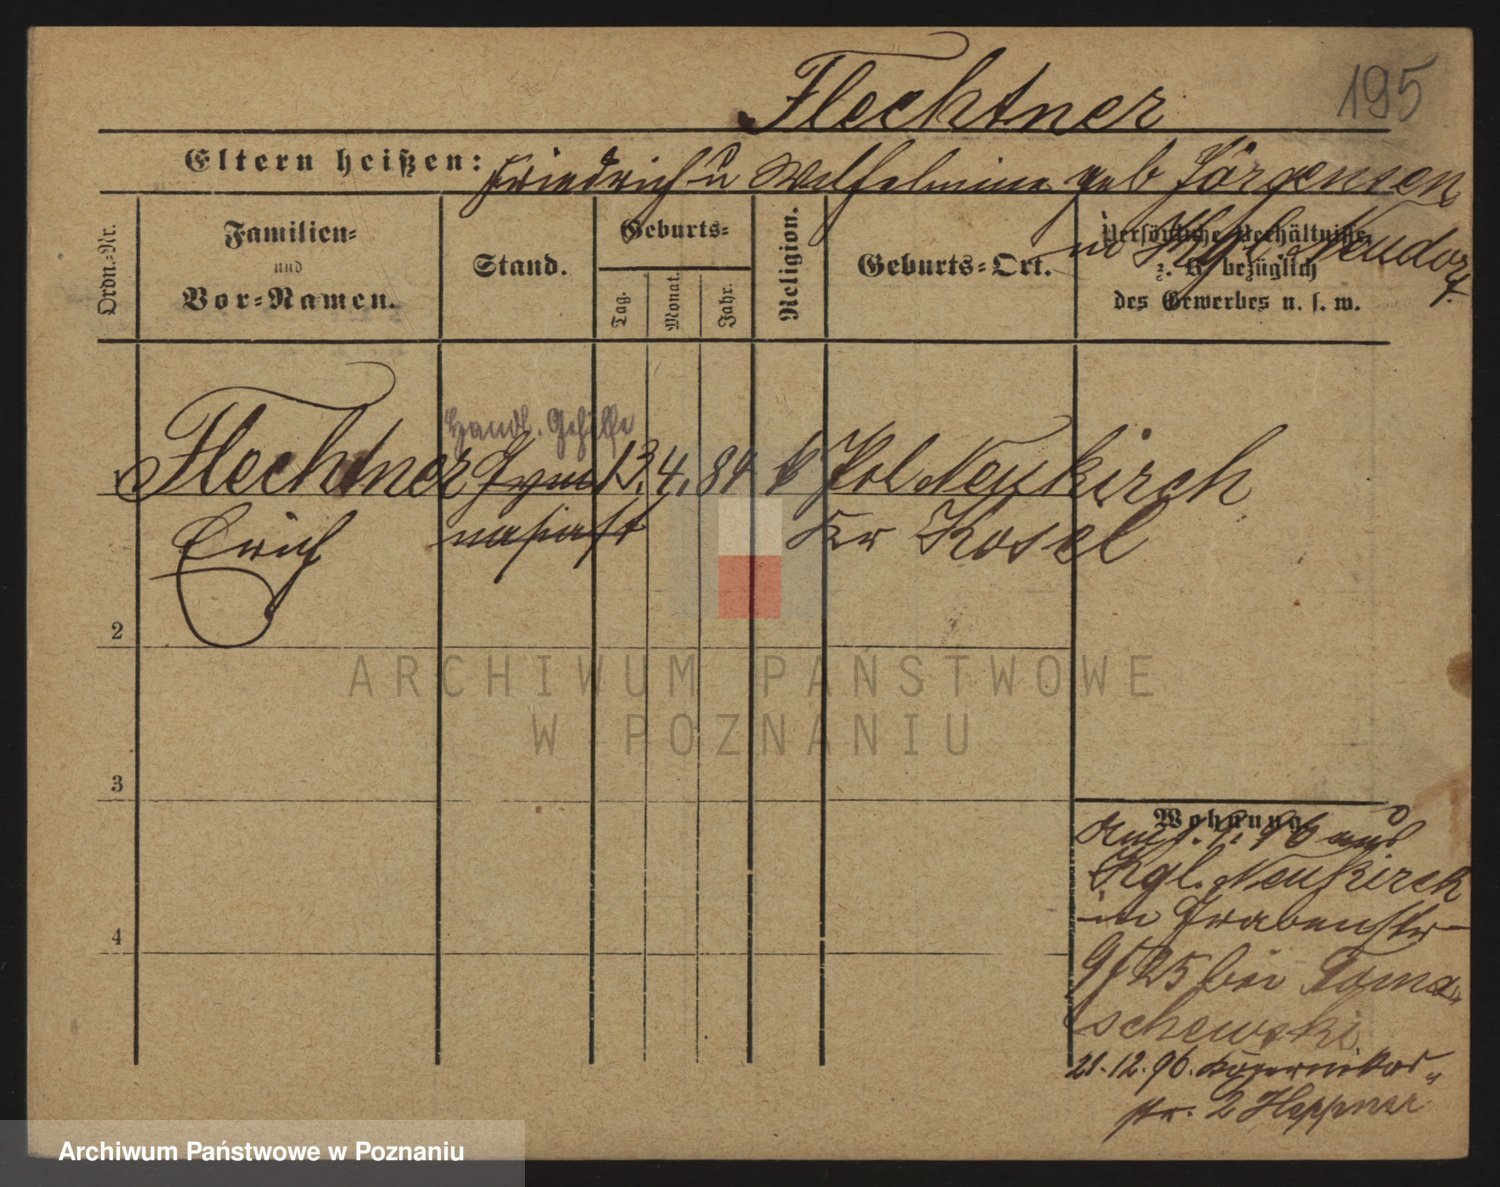 195
Flechtner
Eltern heißen: Friedrich u Wilhelmine geb Jörgensen
in Kgl. Neudorf.
Ordn.-Nr.
Familien-
und
Vor-Namen.
Stand.
Geburts-
Tag.
Monat.
Jahr.
Religion.
Geburts-Ort.
Persönliche Verhältnisse,
z. B. bezüglich
des Gewerbes u. s. w.
Handl. Gehilfe
Flechtner Gym 13. 4. 84 k Pol Neukirch
Erich nasiast Kr Kosel
2
3
4
Wohnung
1. 96 aus
Kgl. Neukirch
in Grabenstr
9/25 bei Toma-
schewski
21. 12. 96. Kopernikus-
str. 2 Heppner
ARCHIWUM PAŃSTWOWE
W POZNANIU
Archiwum Państwowe w Poznaniu